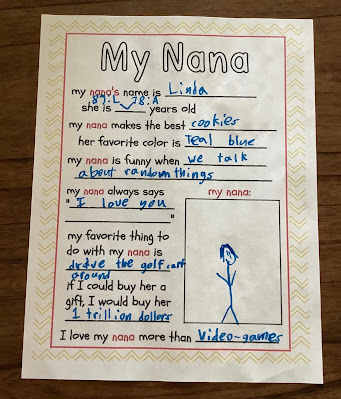 My Nana
my nana's name is Linda
89:L 78:A
she is years old
my nana makes the best cookies
her favorite color is Teal blue
my nana is funny when we talk
about random things
my nana always says
" I love you
"
my nana:
my favorite thing to
do with my nana is
drive the golf cart
around
if I could buy her a
gift, I would buy her
1 trillion dollars
I love my nana more than Video-games